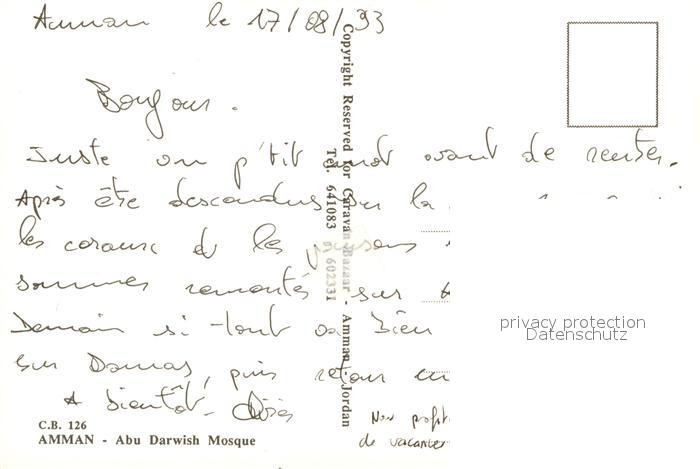 Amman le 17/08/93
Bonjour.
Juste un p'tit mot avant de rentrer.
Après être descendus sur la
les coraux et les poissons
sommes remontés sur
Demain si tout va bien
sur Damas, puis retour en
A bientôt.
Non profit
de vacancier
Copyright Reserved for Caravan Bazaar - Amman - Jordan
Tel. 641083 602331
privacy protection
Datenschutz
C.B. 126
AMMAN - Abu Darwish Mosque